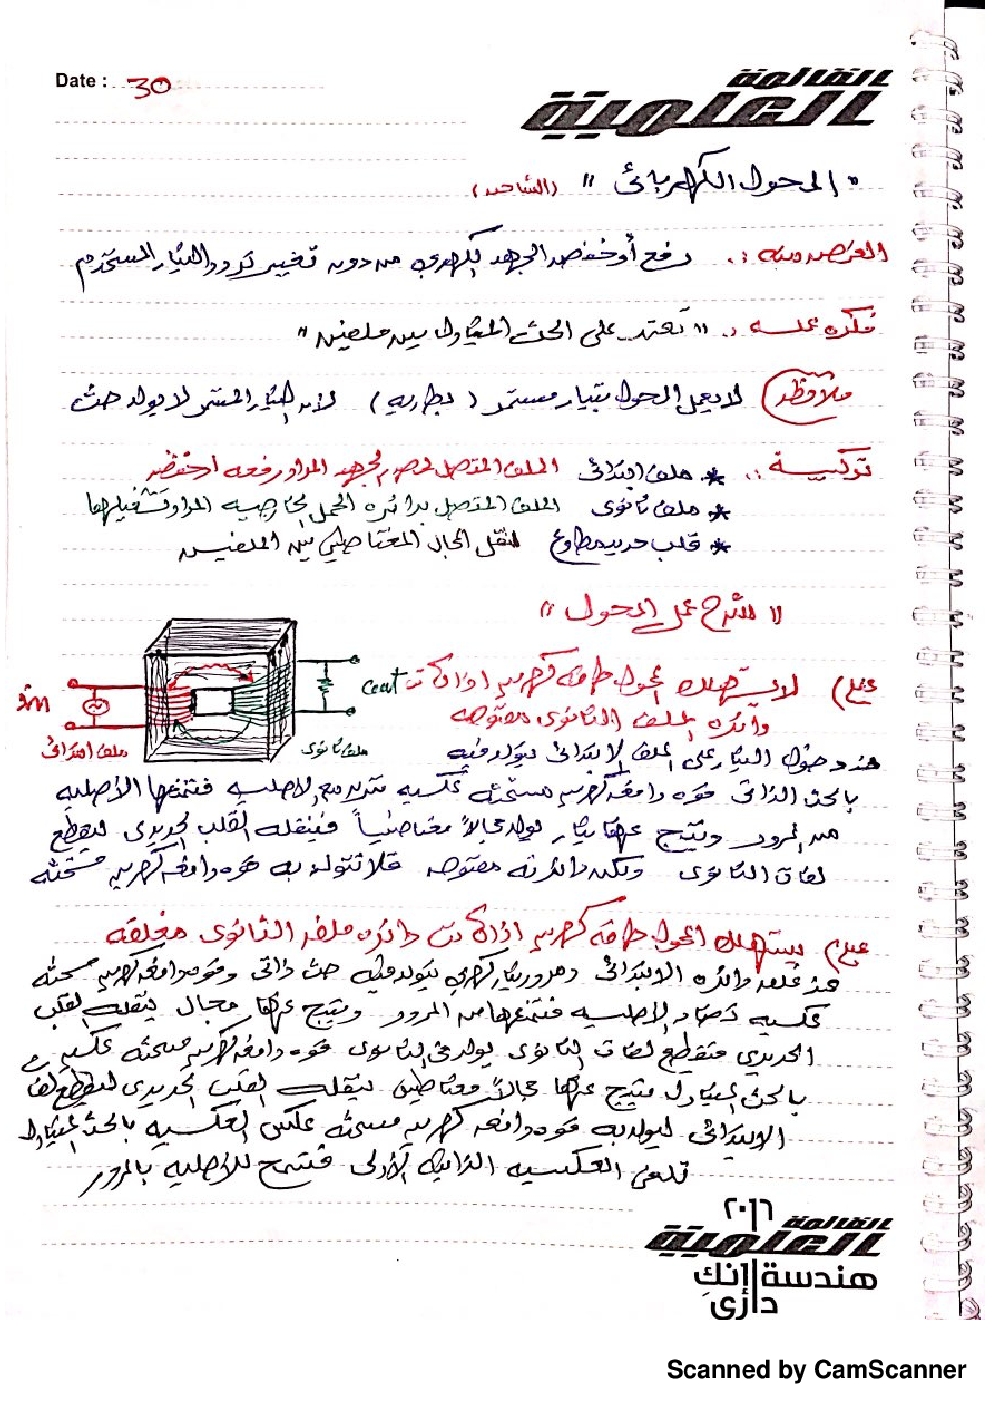 Date : 30
القائمة
العلمية
" المحول الكهربائي " (الشاحن)
الغرض منه :. رفع أو خفض الجهد الكهربي من دون تغيير تردد التيار المستخدم
فكرة عمله :. " تعتمد على الحث المتبادل بين ملفين "
ملاحظة لا يعمل المحول بتيار مستمر ( بطارية ) لأن التيار المستمر لا يولد حث
تركيبه :. * ملف ابتدائي الملف المتصل بمصدر الجهد المراد رفعه او خفضه
* ملف ثانوي الملف المتصل بدائرة الحمل الخارجية المراد تشغيلها
* قلب حديد مطاوع لنقل المجال المغناطيسي بين الملفين
" شرح عمل المحول "
علل) لا يستهلك المحول طاقة كهربية اذا كانت
دائرة الملف الثانوي مفتوحة
in
out
ملف ابتدائي
ملف ثانوي
عند دخول التيار على الملف الابتدائي يتولد فيه
بالحث الذاتي قوة دافعة كهربية مستحثة عكسية تتزن مع الاصلية فتمنعها الأصلية
من المرور وينتج عنها تيار يولد مجالاً مغناطيسياً فينقله القلب الحديدي ليقطع
لفات الثانوي ولكن دائرته مفتوحة فلا تتولد به قوة دافعة كهربية مستحثة
علل) يستهلك المحول طاقة كهربية اذا كانت دائرة ملف الثانوي مغلقة
عند غلق دائرة الابتدائي ومرور تيار كهربي يتولد فيه حث ذاتي وقوة دافعة كهربية مستحثة
عكسية تضاد الاصلية فتمنعها من المرور وينتج عنها مجال ينقله القلب
الحديدي فتقطع لفات الثانوي يولد في الثانوي قوة دافعة كهربية مستحثة عكسية
بالحث المتبادل ينتج عنها مجالاً مغناطيسي ينقله القلب الحديدي ليقطع لفات
الابتدائي ليولد به قوة دافعة كهربية مستحثة عكس العكسية بالحث المتبادل
تلغي العكسية الذاتية الأولى فتسمح للأصلية بالمرور
٢٠١٦
القائمة
العلمية
هندسة إنك
داري
Scanned by CamScanner